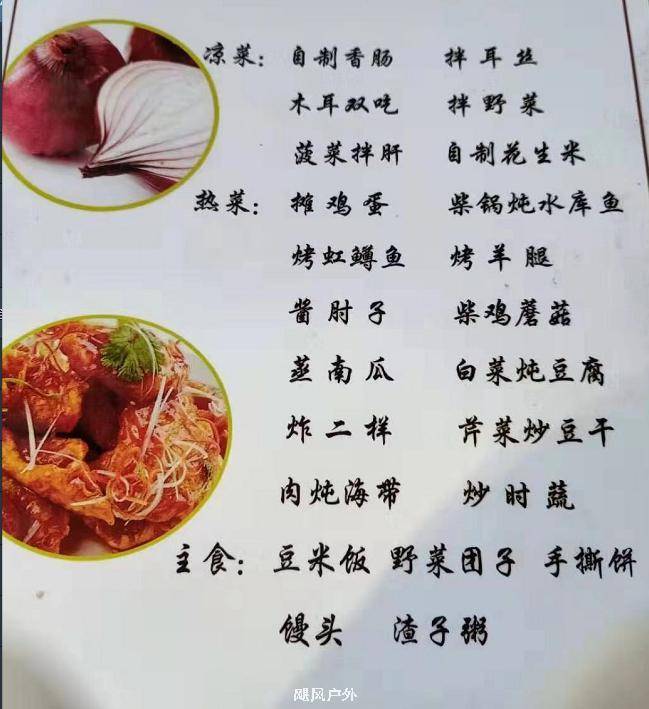 凉菜: 自制香肠 拌耳丝
木耳双吃 拌野菜
菠菜拌肝 自制花生米
热菜: 摊鸡蛋 柴锅炖水库鱼
烤虹鳟鱼 烤羊腿
酱肘子 柴鸡蘑菇
蒸南瓜 白菜炖豆腐
炸二样 芹菜炒豆干
肉炖海带 炒时蔬
主食: 豆米饭 野菜团子 手撕饼
馒头 渣子粥
飓风户外